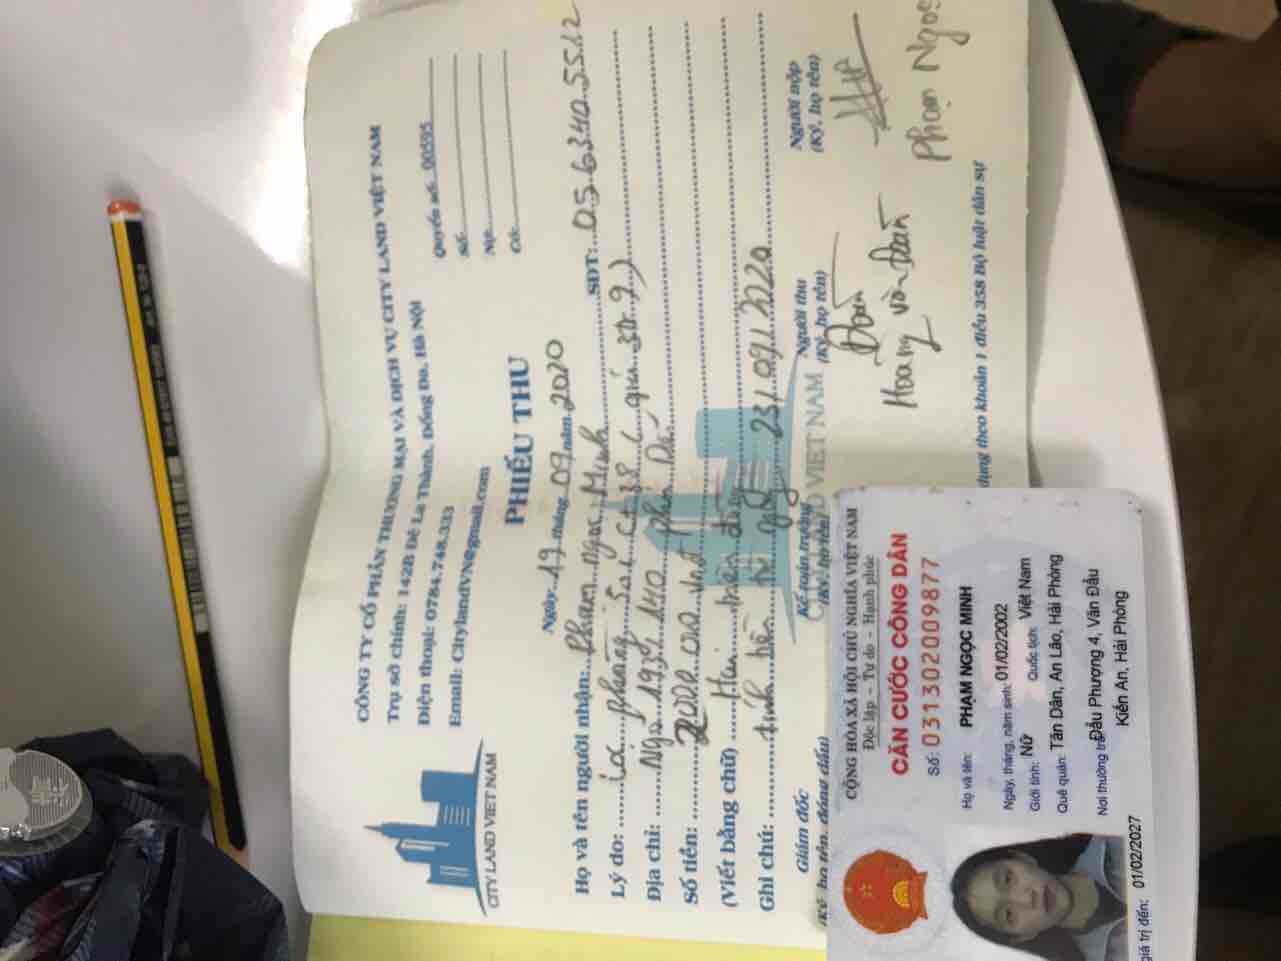 CÔNG TY CỔ PHẦN THƯƠNG MẠI VÀ DỊCH VỤ CITY LAND VIỆT NAM
Trụ sở chính: 142B Đê La Thành, Đống Đa, Hà Nội
Điện thoại: 078.748.333
Email: CitylandVN@gmail.com
CITY LAND VIET NAM
Quyển số: 00595
Số:
Nợ:
Có:
PHIẾU THU
Ngày 19 tháng 09 năm 2020
Họ và tên người nhận: Phạm ngọc Minh SĐT: 056340.5512
Lý do: phòng
Địa chỉ: Ngõ 193
Số tiền: 2000.000
(Viết bằng chữ) Hai
Ghi chú: tính tiền từ ngày 23/09/2020
Giám đốc
(Ký, họ tên, đóng dấu)
Kế toán trưởng
(Ký, họ tên)
Người thu
(Ký, họ tên)
Người nộp
(Ký, họ tên)
VIET NAM
Đoàn
Hoàng văn Đoàn
Phạm Ngọc
dụng theo khoản 1 điều 358 Bộ luật dân sự
CỘNG HÒA XÃ HỘI CHỦ NGHĨA VIỆT NAM
Độc lập – Tự do – Hạnh phúc
CĂN CƯỚC CÔNG DÂN
Số: 031302009877
Họ và tên: PHẠM NGỌC MINH
Ngày, tháng, năm sinh: 01/02/2002
Giới tính: Nữ Quốc tịch: Việt Nam
Quê quán: Tân Dân, An Lão, Hải Phòng
Nơi thường trú: Đẩu Phượng 4, Văn Đẩu
Kiến An, Hải Phòng
giá trị đến: 01/02/2027